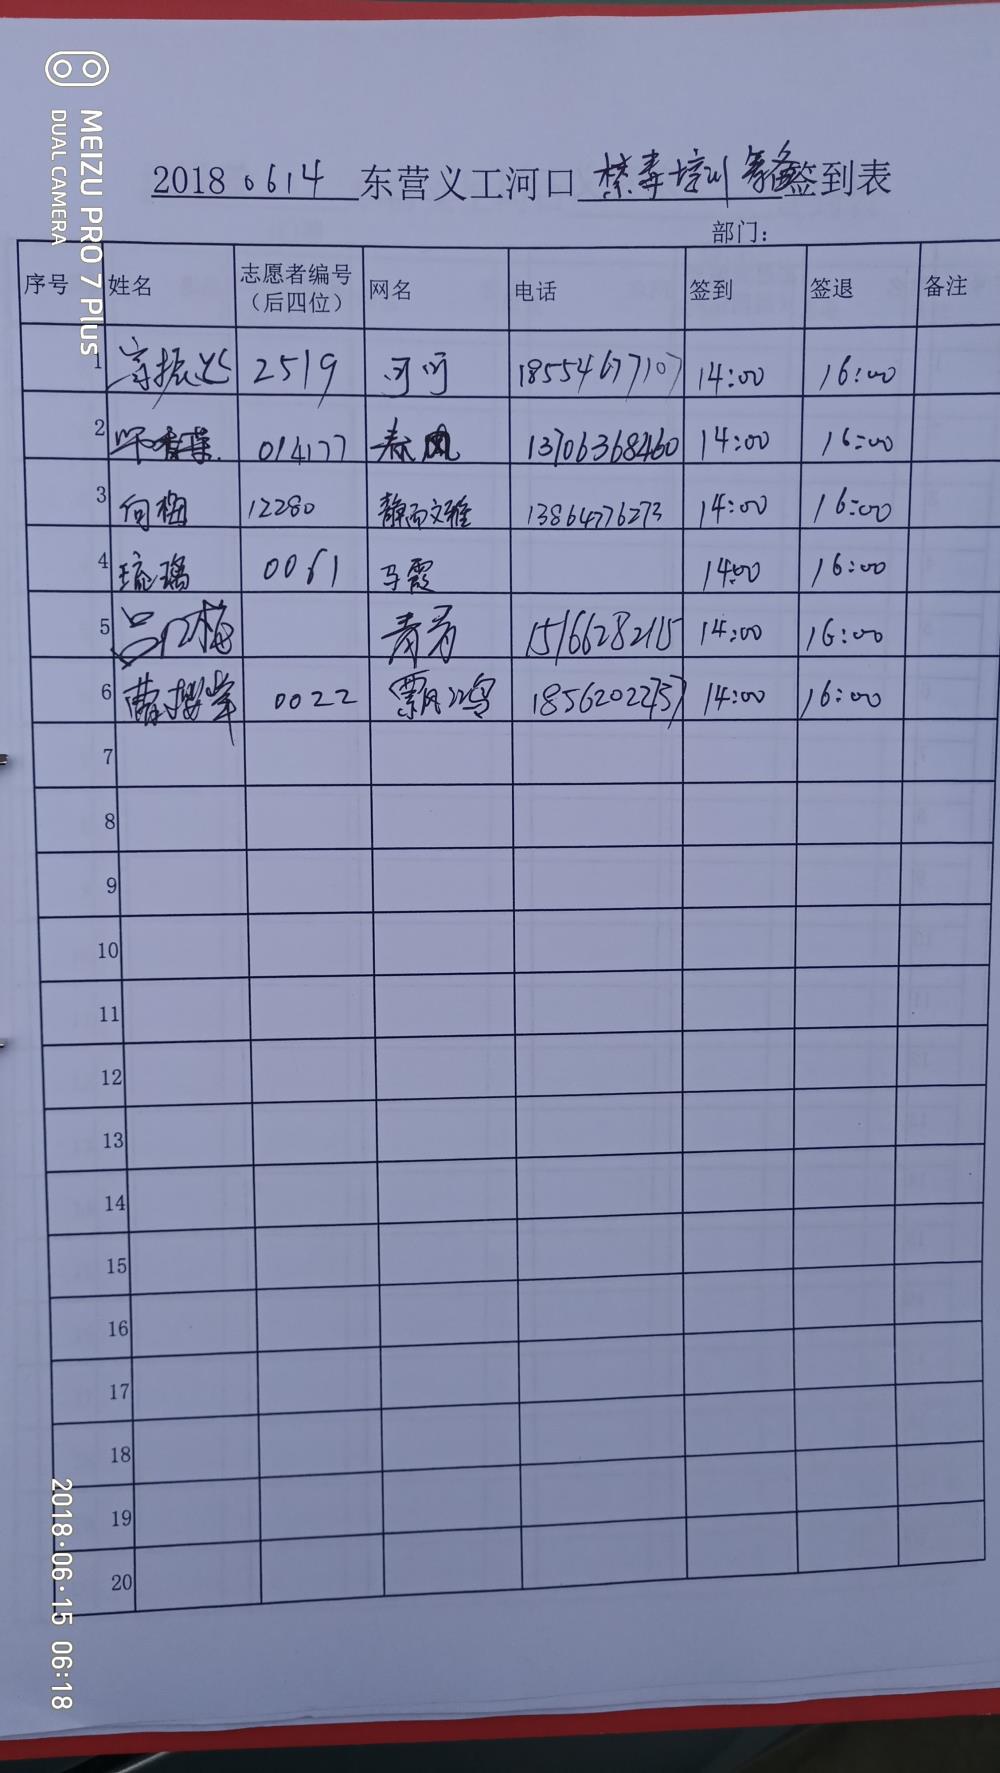 MEIZU PRO 7 Plus
DUAL CAMERA
2018 0614 东营义工河口 禁毒培训 签到表
部门：
序号 姓名 志愿者编号（后四位） 网名 电话 签到 签退 备注
1 2519 河河 18554677107 14:00 16:00
2 014177 春风 13706368460 14:00 16:00
3 向梅 12280 静而文雅 13864776273 14:00 16:00
4 琉璃 0061 马霞 14:00 16:00
5 青青 15166282115 14:00 16:00
6 0022 14:00 16:00
7
8
9
10
11
12
13
14
15
16
17
18
19
20
2018·06·15 06:18